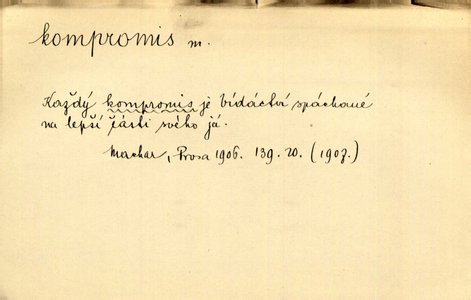 kompromis m.
Každý kompromis je bídáctví spáchané
na lepší části svého já.
Machar, Prosa 1906. 139. 20. (1907.)